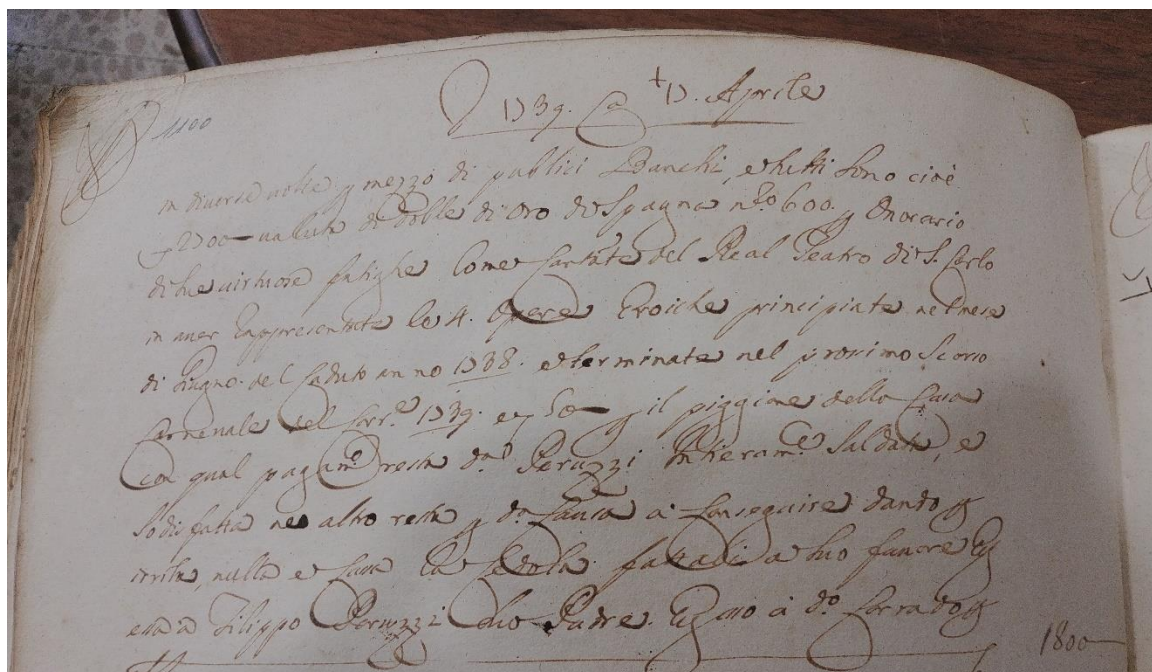 1100
1739. a 17. Aprile
in diverse volte p mezzo di publici Banchi, e tutti sono cioè
2700 valuta di doble di oro di Spagna n.º 600. p Onorario
di sue virtuose fatighe come Cantate del Real Teatro di S. Carlo
in aver rappresentate le 4. Opere Eroiche principiate nel mese
di Giugno del caduto anno 1738. e terminate nel prossimo scorso
Carnevale del Corr.e 1739. e 50 p il piggione della Casa
con qual pagam.to resta d.a Peruzzi intieram.te saldata, e
sodisfatta ne altro resta p d.a Causa a conseguire dando p
irrita, nulla e cassa la cedola fattasi a suo favore
essa a Filippo Peruzzi suo Padre. a d.o Corrado p
1800